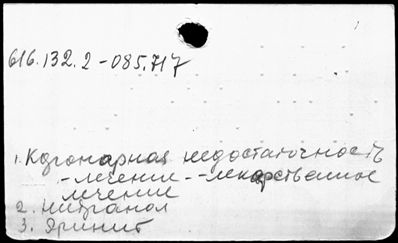 616.132.2-085.717
1. Коронарная недостаточность
- лечение - - лекарственное
лечение
2. Нитранол
3. Эринит